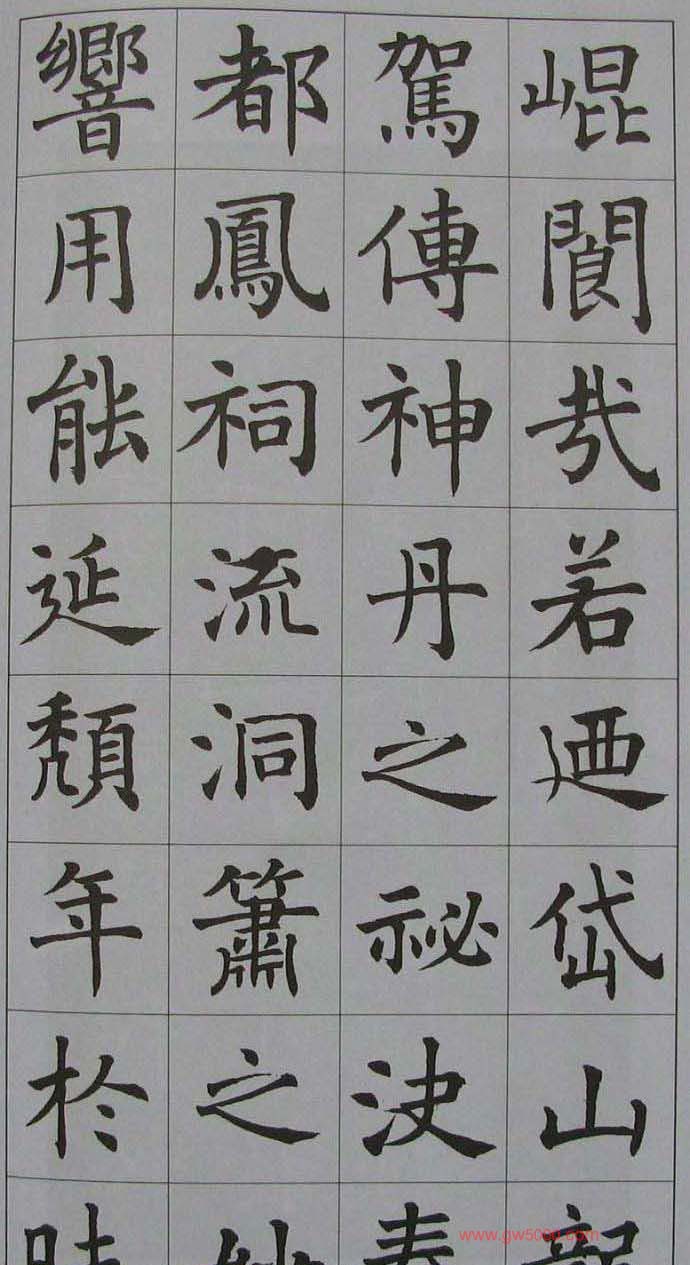 崐閬哉若廼岱山龍
駕傳神丹之祕決秦
都鳳祠流洞簫之
響用能延頹年於
www.gw5000.com